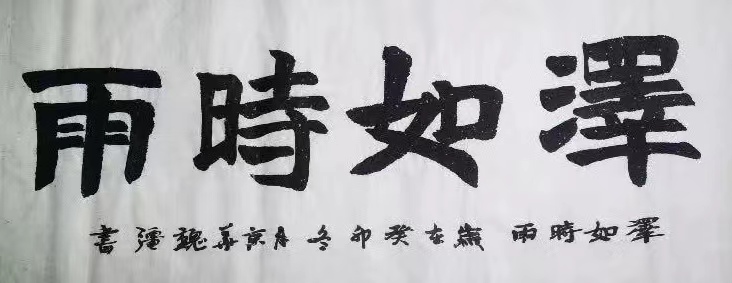 澤如時雨
澤如時雨 歲在癸卯冬月京華魏疆書